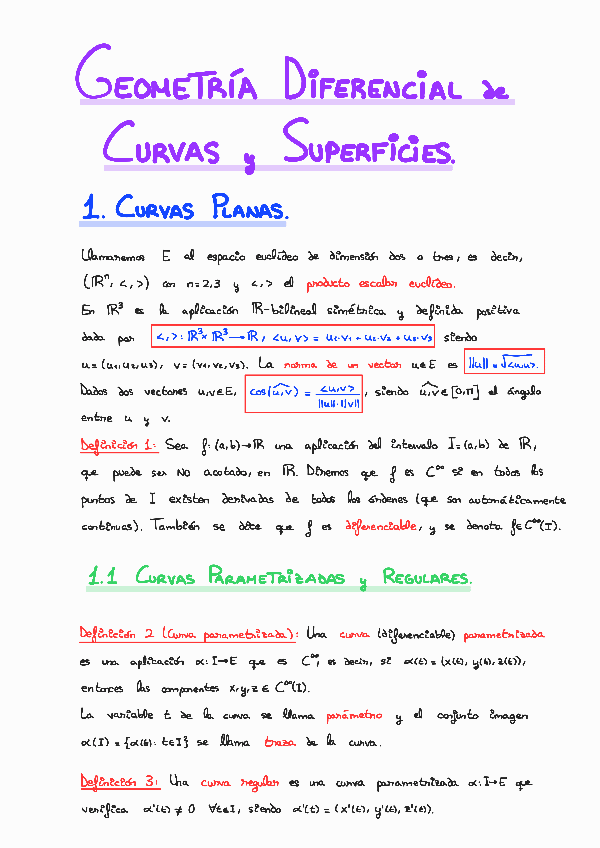 GEOMETRÍA DIFERENCIAL de
CURVAS y SUPERFICIES.
1. CURVAS PLANAS.
Llamaremos E al espacio euclídeo de dimensión dos o tres, es decir,
(ℝⁿ, <,>) con n=2,3 y <,> el producto escalar euclídeo.
En ℝ³ es la aplicación ℝ-bilineal simétrica y definida positiva
dada por <,>: ℝ³×ℝ³→ℝ, <u,v> = u₁·v₁ + u₂·v₂ + u₃·v₃ siendo
u=(u₁,u₂,u₃), v=(v₁,v₂,v₃). La norma de un vector u∈E es ||u|| = √<u,u>.
Dados dos vectores u,v∈E, cos(u,v) = <u,v> / ||u||·||v||, siendo u,v∈[0,π] el ángulo
entre u y v.
Definición 1: Sea f:(a,b)→ℝ una aplicación del intervalo I=(a,b) de ℝ,
que puede ser NO acotado, en ℝ. Diremos que f es C^∞ si en todos los
puntos de I existen derivadas de todos los órdenes (que son automáticamente
continuas). También se dice que f es diferenciable, y se denota f∈C^∞(I).
1.1 CURVAS PARAMETRIZADAS y REGULARES.
Definición 2 (Curva parametrizada): Una curva (diferenciable) parametrizada
es una aplicación α:I→E que es C^∞, es decir, si α(t)=(x(t), y(t), z(t)),
entonces las componentes x,y,z ∈ C^∞(I).
La variable t de la curva se llama parámetro y el conjunto imagen
α(I)={α(t): t∈I} se llama traza de la curva.
Definición 3: Una curva regular es una curva parametrizada α:I→E que
verifica α'(t) ≠ 0 ∀t∈I, siendo α'(t) = (x'(t), y'(t), z'(t)).